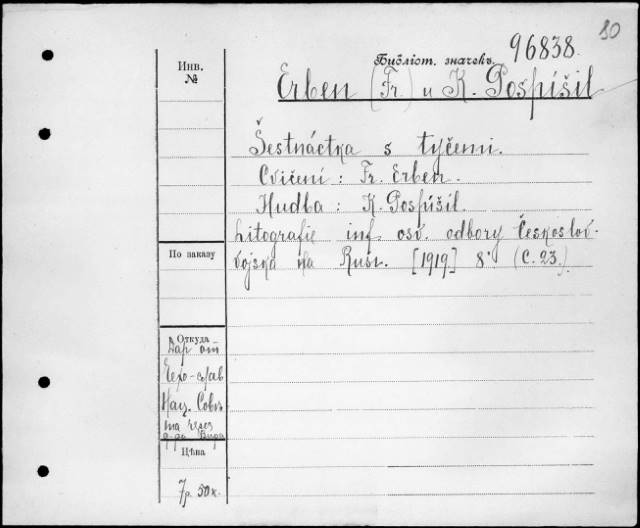 80
Библіот. значекъ. 96838
Инв. №
Erben (Fr.) и K. Pospíšil
Šestnáctka s tyčemi.
Cvičení : Fr. Erben.
Hudba : K. Pospíšil.
Litografie inf. osv. odbory Českoslov.
vojska na Rusi. [1919] 8° (C. 23.)
По заказу
Откуда
Даръ от
Чехо-слав
Нац. Совѣ
та через
д-ра
Цѣна
7р. 50к.